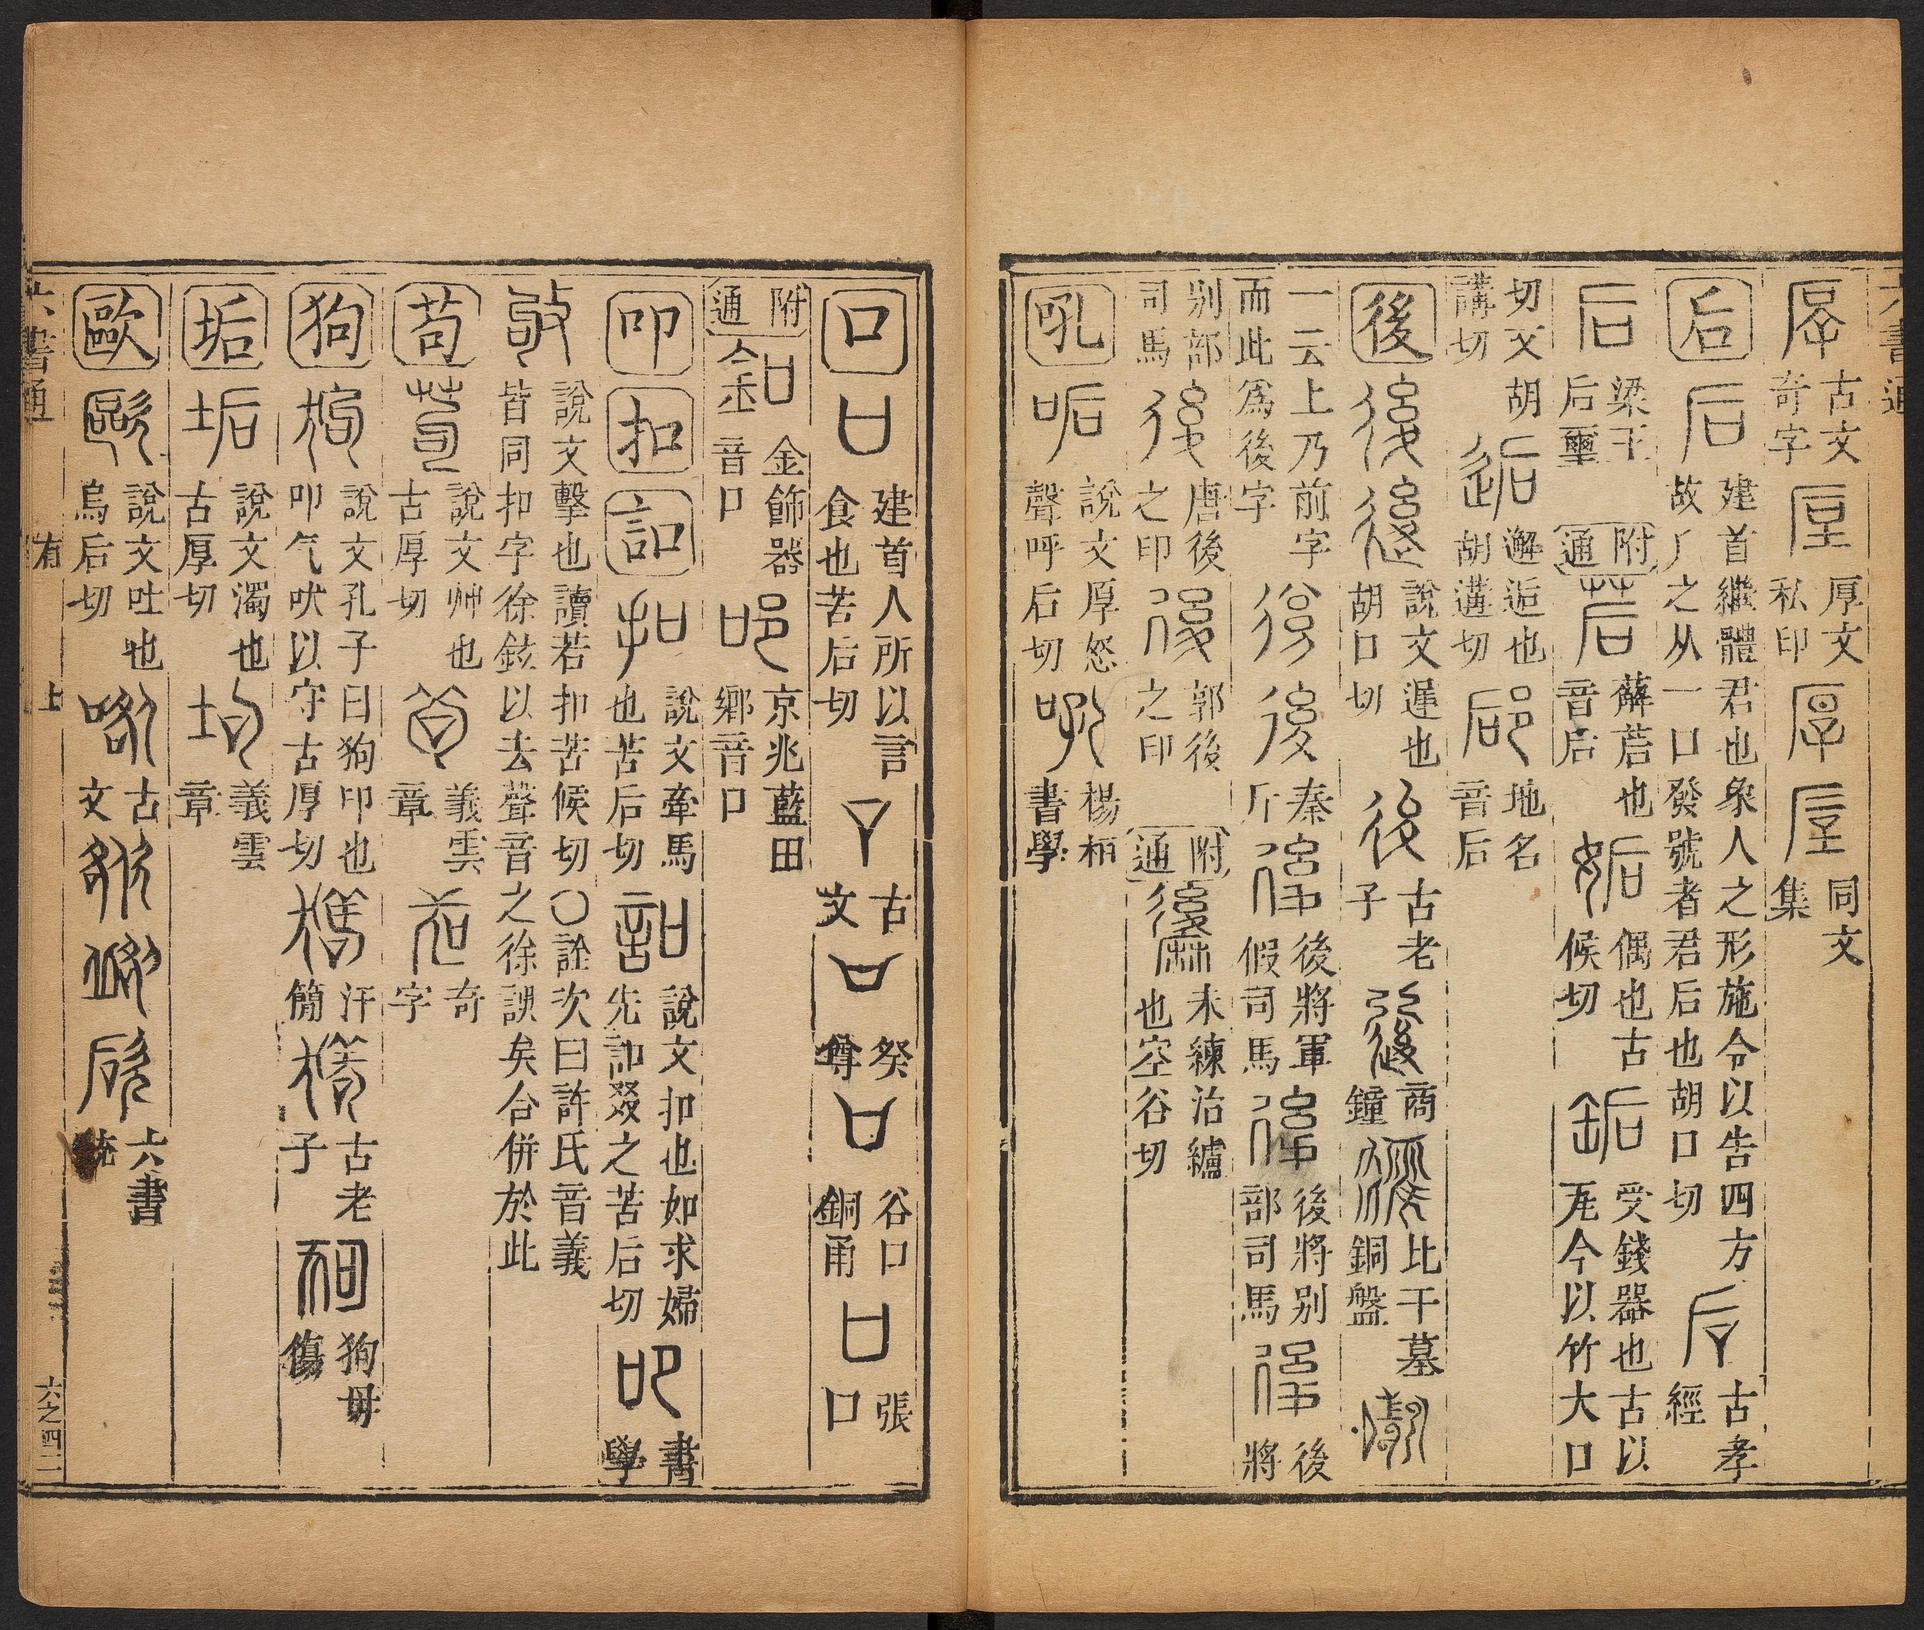 厚 古文奇字 厚 厚文私印 厚 厚 同文集
后 后 建首繼體君也象人之形施令以告四方故厂之从一口發號者君后也胡口切 后 古孝經
后 梁王后璽 附通 茩 薢茩也音后 姤 偶也古候切 缿 受錢器也古以瓦今以竹大口
切又胡講切 逅 邂逅也胡遘切 郈 地名音后
後 後 後 說文遲也胡口切 後 古老子 後 商鐘 後 比干墓銅盤
一云上乃前字而此為後字 後 後 秦斤 後 後將軍假司馬 後 後將別部司馬 後 後將
別部司馬 後 唐後之印 後 郭後之印 附通 未練治纑也空谷切
吼 吽 說文厚怒聲呼后切 吼 楊桓書學
口 口 建首人所以言食也苦后切 口 古文 口 癸尊 口 谷口銅甬 口 張口
附通 釦 金飾器音口 𨙫 京兆藍田鄉音口
叩 扣 訆 扣 說文牽馬也苦后切 說文扣也如求婦先訆叕之苦后切 叩 書學
敂 說文擊也讀若扣苦候切〇詮次曰許氏音義皆同扣字徐鉉以去聲音之徐誤矣合併於此
苟 苟 說文艸也古厚切 苟 義雲章 苟 奇字
狗 狗 說文孔子曰狗叩也叩气吠以守古厚切 狗 汗簡 狗 古老子 狗 狗毋傷
垢 垢 說文濁也古厚切 垢 義雲章
歐 歐 說文吐也烏后切 古文 六書統
六書通 有 上 六之四二